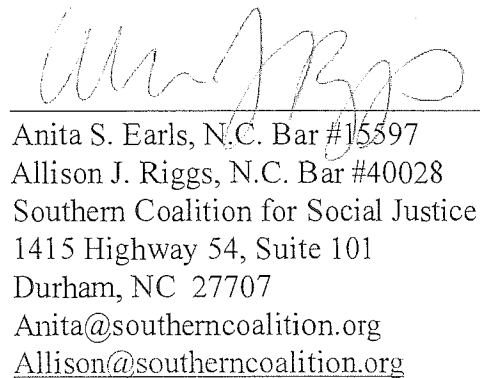 Anita S. Earls, N.C. Bar #15597
Allison J. Riggs, N.C. Bar #40028
Southern Coalition for Social Justice
1415 Highway 54, Suite 101
Durham, NC 27707
Anita@southerncoalition.org
Allison@southerncoalition.org